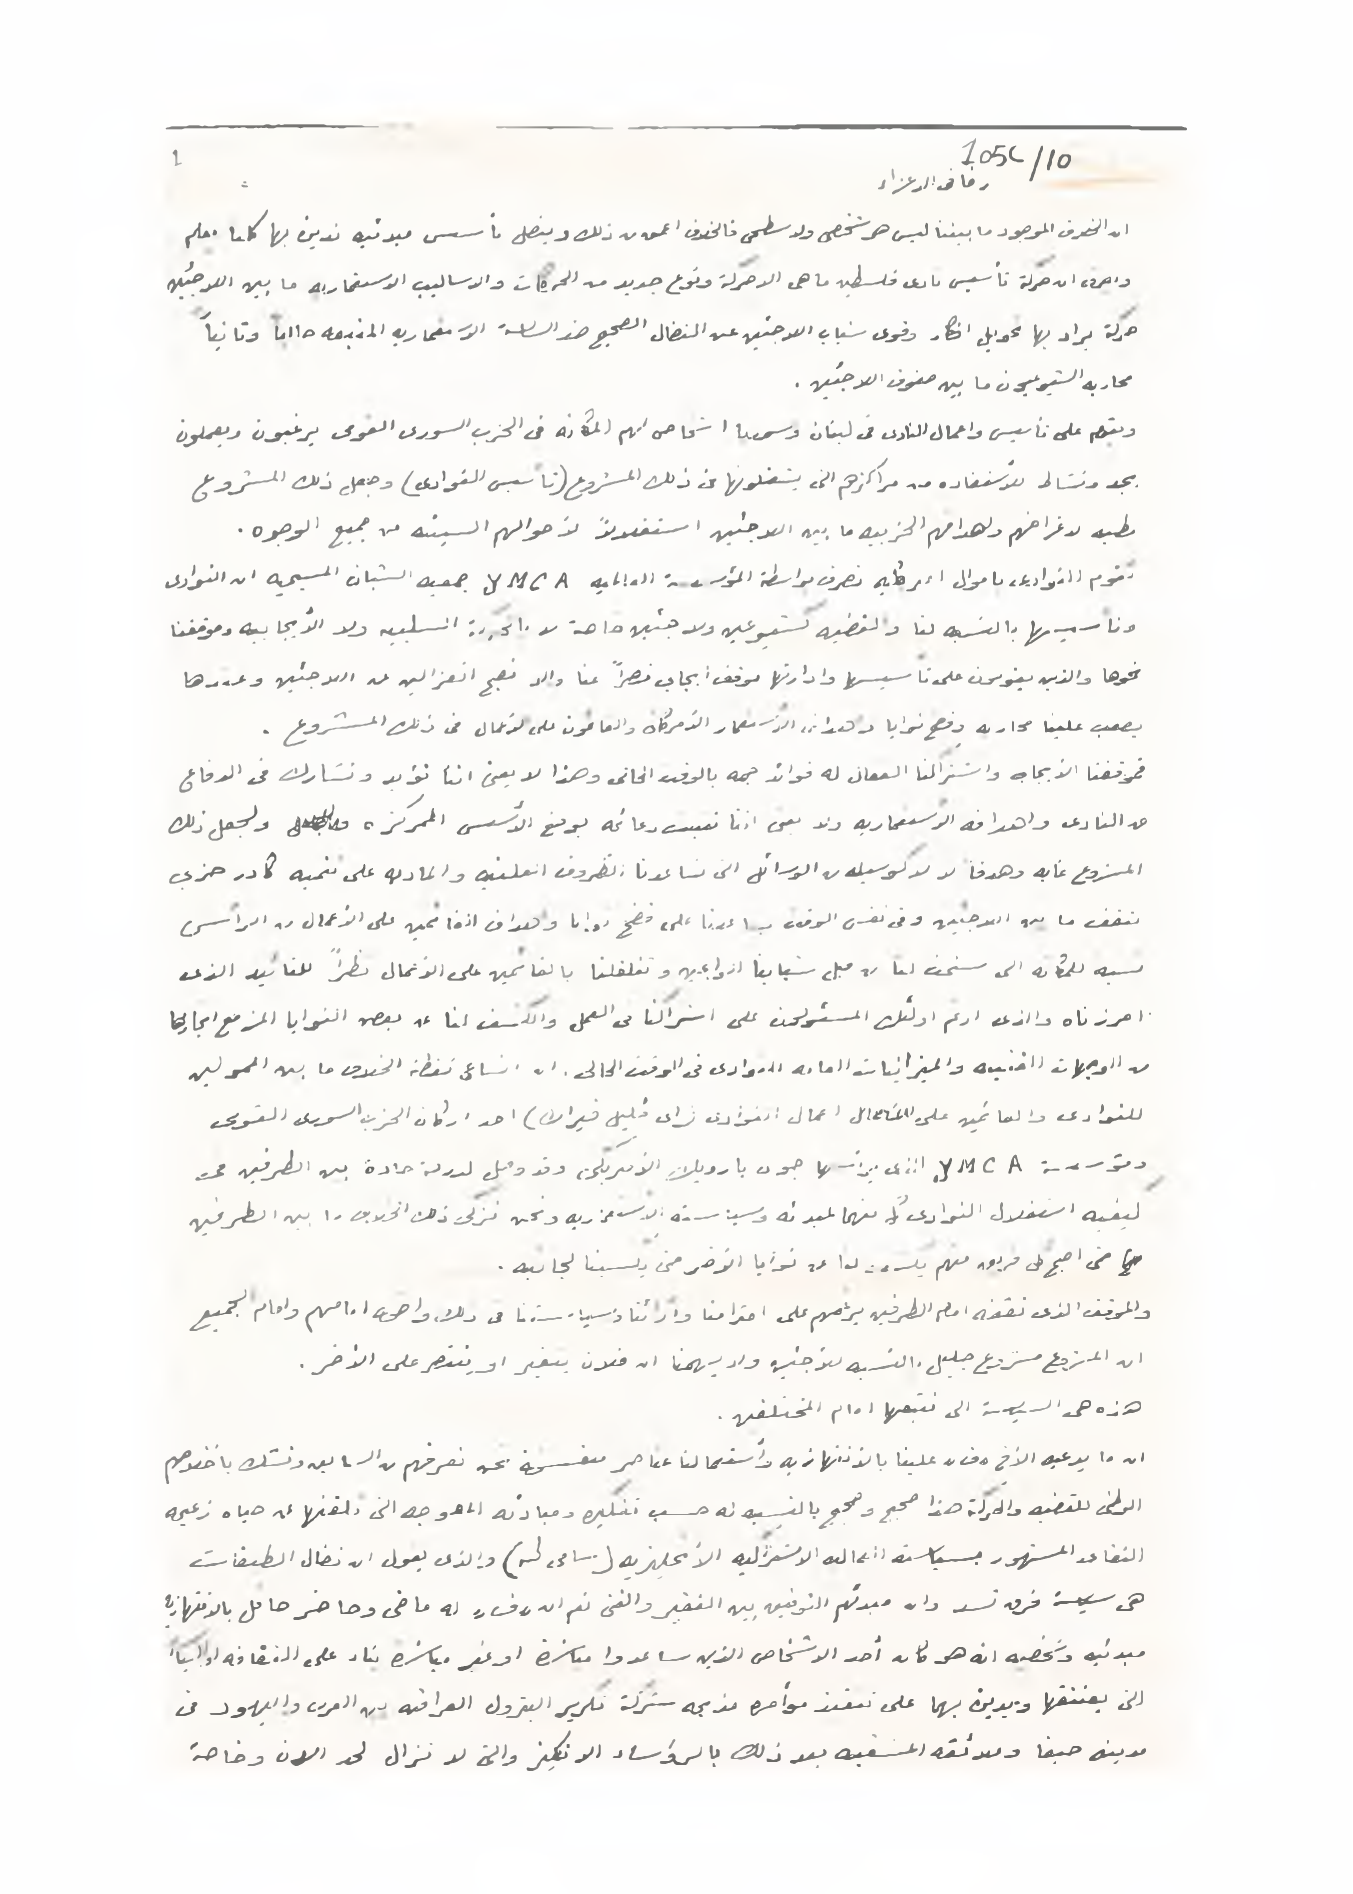 1
1056/10
رفاقي الاعزاء
ان الخلاف الموجود ما بيننا ليس هو شخصي ولا سطحي فالخلاف اعمق من ذلك ويتصل بأسس مبدئيه ندين بها كلنا
واعرف ان حركة تأسيس نادي فلسطين ما هي الا حركة ونوع جديد من الحركات والاساليب الاستعماريه ما بين اللاجئين
حركة يراد بها تحويل افكار وقوى شباب اللاجئين عن النضال الصحيح ضد السياسة الاستعماريه المتبعه حالياً وثانياً
محاربه الشيوعيون ما بين صفوف اللاجئين .
ويقوم على تأسيس واعمال النادي في لبنان وسوريا اشخاص لهم المكانه في الحزب السوري القومي يرغبون ويعملون
بجد ونشاط للأستفاده من مراكزهم التي يشغلونها في ذلك المشروع (تأسيس النوادي) وجعل ذلك المشروع
مطيه لاغراضهم واهدافهم الحزبيه ما بين اللاجئين استغلالاً لأحوالهم السيئه من جميع الوجوه .
تقوم النوادي باموال اميركيه تصرف بواسطة المؤسسة العالميه YMCA جمعيه الشبان المسيحيه ان النوادي
وتأسيسها بالنسبه لنا والقضيه كشيوعيين ولاجئين خاصة لا السلبيه ولا الأيجابيه وموقفنا
نحوها والذين يقومون على تأسيسها وادارتها موقف ايجابي قصراً عنا والا نصبح انعزاليين عن اللاجئين وعندها
يصعب علينا محاربه وفضح نوايا واهداف الأستعمار الأمركاني والقائمون على الأعمال في ذلك المشروع .
فموقفنا الأيجابي واشتراكنا الفعال له فوائد جمه بالوقت الحالي وهذا لا يعني اننا نؤيد ونشارك في الدفاع
عن النادي واهدافه الأستعماريه ولا يعني اننا نثبت دعائمه بوضع الأسس المركزه ولجعل ذلك
المشروع غايه وهدفا لا بل كوسيله من الوسائل التي تساعدنا الظروف العلنيه والماديه على تنميه كادر حزبي
مثقف ما بين اللاجئين وفي نفس الوقت يساعدنا على فضح نوايا واهداف القائمين على الأعمال من الرأس
نسبه للمكانه التي سنحت لنا من قبل شبابنا الواعين وتغلغلنا بالقائمين على الأعمال نظراً للتأييد الذي
احرزناه والذي ارغم اولئك المسئولون على اشراكنا في العمل والكشف لنا عن بعض النوايا المزمع ايجادها
من الوجهات الفنيه والميزانيات العامه للنوادي في الوقت الحالي . ان اتساع نقطة الخلاف ما بين الممولين
للنوادي والقائمين على اعمال النوادي احد اركان الحزب السوري القومي
ومؤسسة YMCA التي يرأسها جون الأمريكي وقد وصل لدرجة حادة بين الطرفين في
كيفيه استغلال النوادي كل منهما لمبدئه وسياسته الاستعماريه ونحن نزكي ذلك الخلاف ما بين الطرفين
حتى اصبح كل فريق منهم يكشف لنا عن نوايا الأخر حتى يكسبنا لجانبه .
والموقف الذي نقفه امام الطرفين يرغمهم على احترامنا وآرائنا وسياستنا في ذلك واضحه امامهم وامام الجميع
ان المشروع مشروع جليل بالنسبه للأجئين ولا يهمنا ان فلان يتغير او ينتصر على الأخر .
هذه هي السياسة التي نتبعها امام المختلفين .
ان ما يدعيه الأخ علينا بالأنتهازيه وأستعمالنا عناصر متفسخة نحن نعرفهم من السابق ونشك بأخلاصهم
الوطني للقضيه والحركة هذا صحيح وصحيح بالنسبه له حسب تفكيره ومبادئه المعوجه التي تلقنها عن حياه زعيمه
النقابي المشهور بسياسته العماليه الاشتراكيه الأنجليزيه (سامي طه) والذي يقول ان نضال الطبقات
هي سياسة فرق تسد وان مبدئهم التوفيق بين الفقير والغني نعم ان له ماضي وحاضر حافل بالانتهازية
مبدئيه وشخصيه انه هو كان أحد الاشخاص الذين ساعدوا مباشرة او غير مباشرة بناء على الثقافه
التي يعتنقها ويدين بهما على تنفيذ مؤامره مذبحه شركة تكرير البترول العراقيه بين العرب واليهود في
مدينه حيفا وعلاقته المتينه بعد ذلك بالرؤساء الانكليز والتي لا تزال لحد الان وخاصة